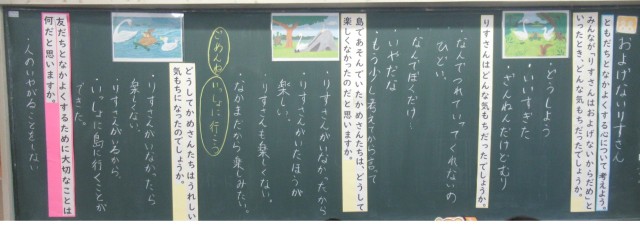 およげないりすさん
ともだちとなかよくする心について考えよう。
みんなが「りすさんはおよげないからだめ」と
いったとき、どんな気もちだったでしょうか。
・どうしよう
・いいすぎた
・ざんねんだけどむり
りすさんはどんな気もちだったでしょうか。
・なんでつれていってくれないの
ひどい。
・なんでぼくだけ
・いやだな
・もう少し考えてから言って
島であそんでいたかめさんたちは、どうして
楽しくなかったのだと思いますか。
・りすさんがいなかったから
・りすさんがいたほうが
楽しい。
・りすさんも楽しくない。
・なかまだから楽しみたい。
ごめんね
いっしょに行こう
どうしてかめさんたちはうれしい
気もちになったのでしょうか。
・りすさんがいなかったら
楽しくない。
・りすさんがいるから。
・いっしょに島へ行くことが
できた。
友だちとなかよくするために大切なことは
何だと思いますか。
・人のいやがることをしない